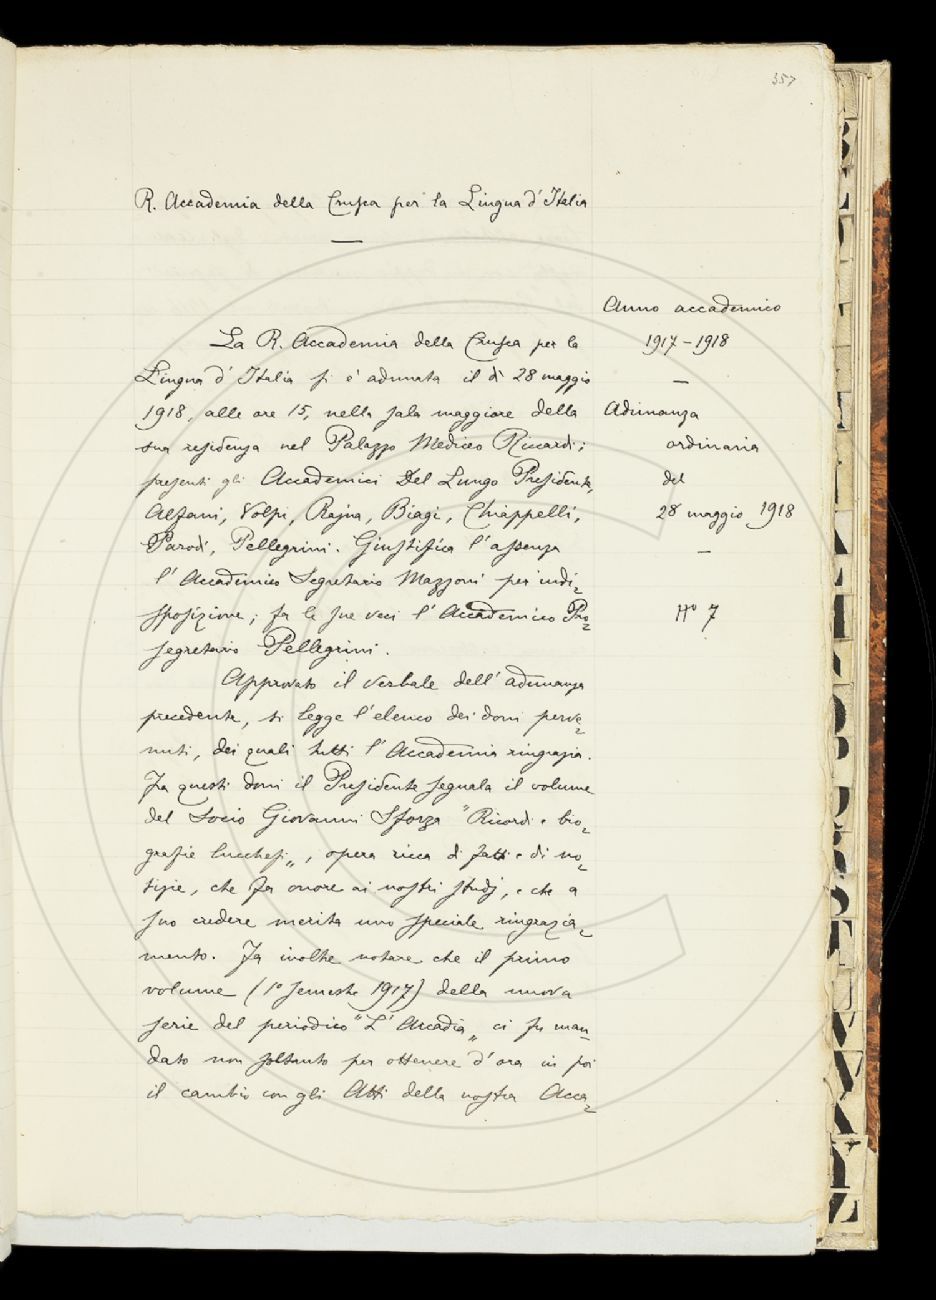 357
R. Accademia della Crusca per la Lingua d'Italia
Anno accademico
1917-1918
Adunanza
ordinaria
del
28 maggio 1918
N° 7
La R. Accademia della Crusca per la
Lingua d'Italia si è adunata il dì 28 maggio
1918, alle ore 15, nella sala maggiore della
sua residenza nel Palazzo Mediceo Riccardi;
presenti gli Accademici Del Lungo Presidente,
Alfani, Volpi, Rajna, Biagi, Chiappelli,
Parodi, Pellegrini. Giustifica l'assenza
l'Accademico Segretario Mazzoni per indi-
sposizione; fa le sue veci l'Accademico Pro-
segretario Pellegrini.
Approvato il verbale dell'adunanza
precedente, si legge l'elenco dei doni perve-
nuti, dei quali tutti l'Accademia ringrazia.
Fra questi doni il Presidente segnala il volume
del Socio Giovanni Sforza "Ricordi e bio-
grafie lucchesi", opera ricca di fatti e di no-
tizie, che fa onore ai nostri studj, e che a
suo credere merita uno speciale ringrazia-
mento. Fa inoltre notare che il primo
volume (1° semestre 1917) della nuova
serie del periodico "L'Arcadia" ci fu man-
dato non soltanto per ottenere d'ora in poi
il cambio con gli Atti della nostra Acca-
B
C
D
L
M
N
O
P
Q
R
S
T
U
V
X
Y
Z